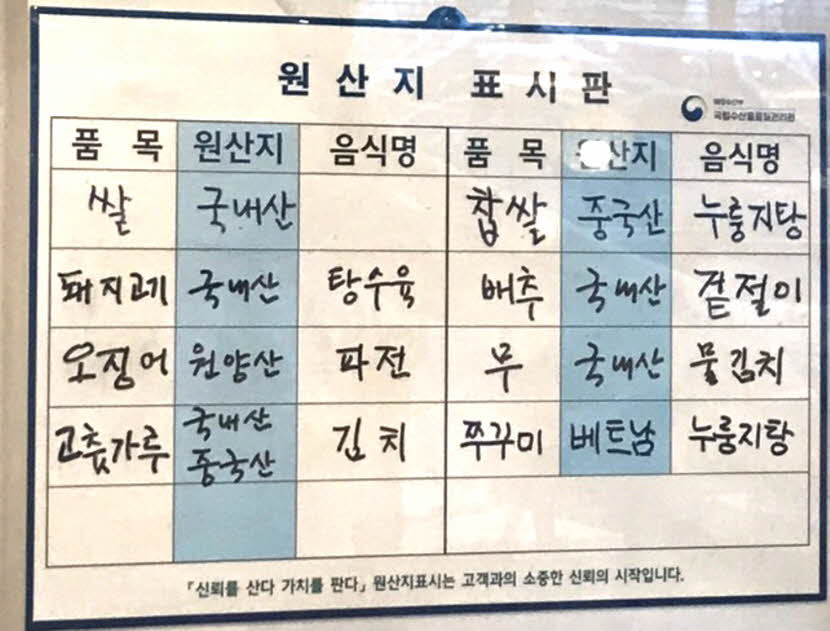 원산지 표시판
해양수산부
국립수산물품질관리원
품목 원산지 음식명 품목 원산지 음식명
쌀 국내산 찹쌀 중국산 누룽지탕
돼지고기 국내산 탕수육 배추 국내산 겉절이
오징어 원양산 파전 무 국내산 물김치
고춧가루 국내산 중국산 김치 쭈꾸미 베트남 누룽지탕
「신뢰를 산다 가치를 판다」 원산지표시는 고객과의 소중한 신뢰의 시작입니다.